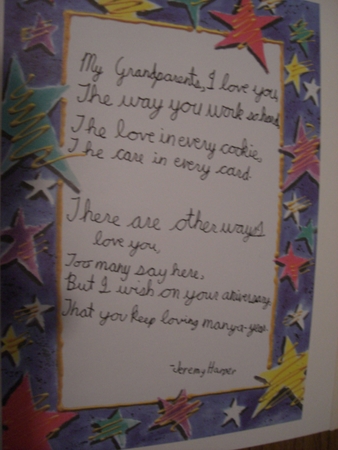 My Grandparents, I love you,
The way you work so hard,
The love in every cookie,
The care in every card.
There are other ways I
love you,
Too many say here,
But I wish on your aniversary,
That you keep loving many-a-year.
-Jeremy Harper